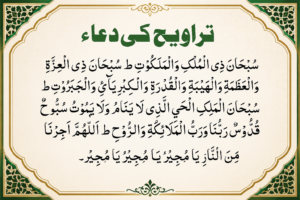 تراویح کی دعاء
سُبْحَانَ ذِی الْمُلْکِ وَالْمَلَکُوْتِ ط سُبْحَانَ ذِی الْعِزَّةِ
وَالْعَظَمَةِ وَالْهَيْبَةِ وَالْقُدْرَةِ وَالْکِبْرِيَآئِ وَالْجَبَرُوْتِ ط
سُبْحَانَ الْمَلِکِ الْحَيِّ الَّذِی لَا يَنَامُ وَلَا يَمُوْتُ سُبُّوحٌ
قُدُّوْسٌ رَبُّنَا وَرَبُّ الْمَلَائِکَةِ وَالرُّوْحِ ط اَللّٰهُمَّ اَجِرْنَا
مِنَ النَّارِ يَا مُجِيْرُ يَا مُجِيْرُ يَا مُجِيْر۔